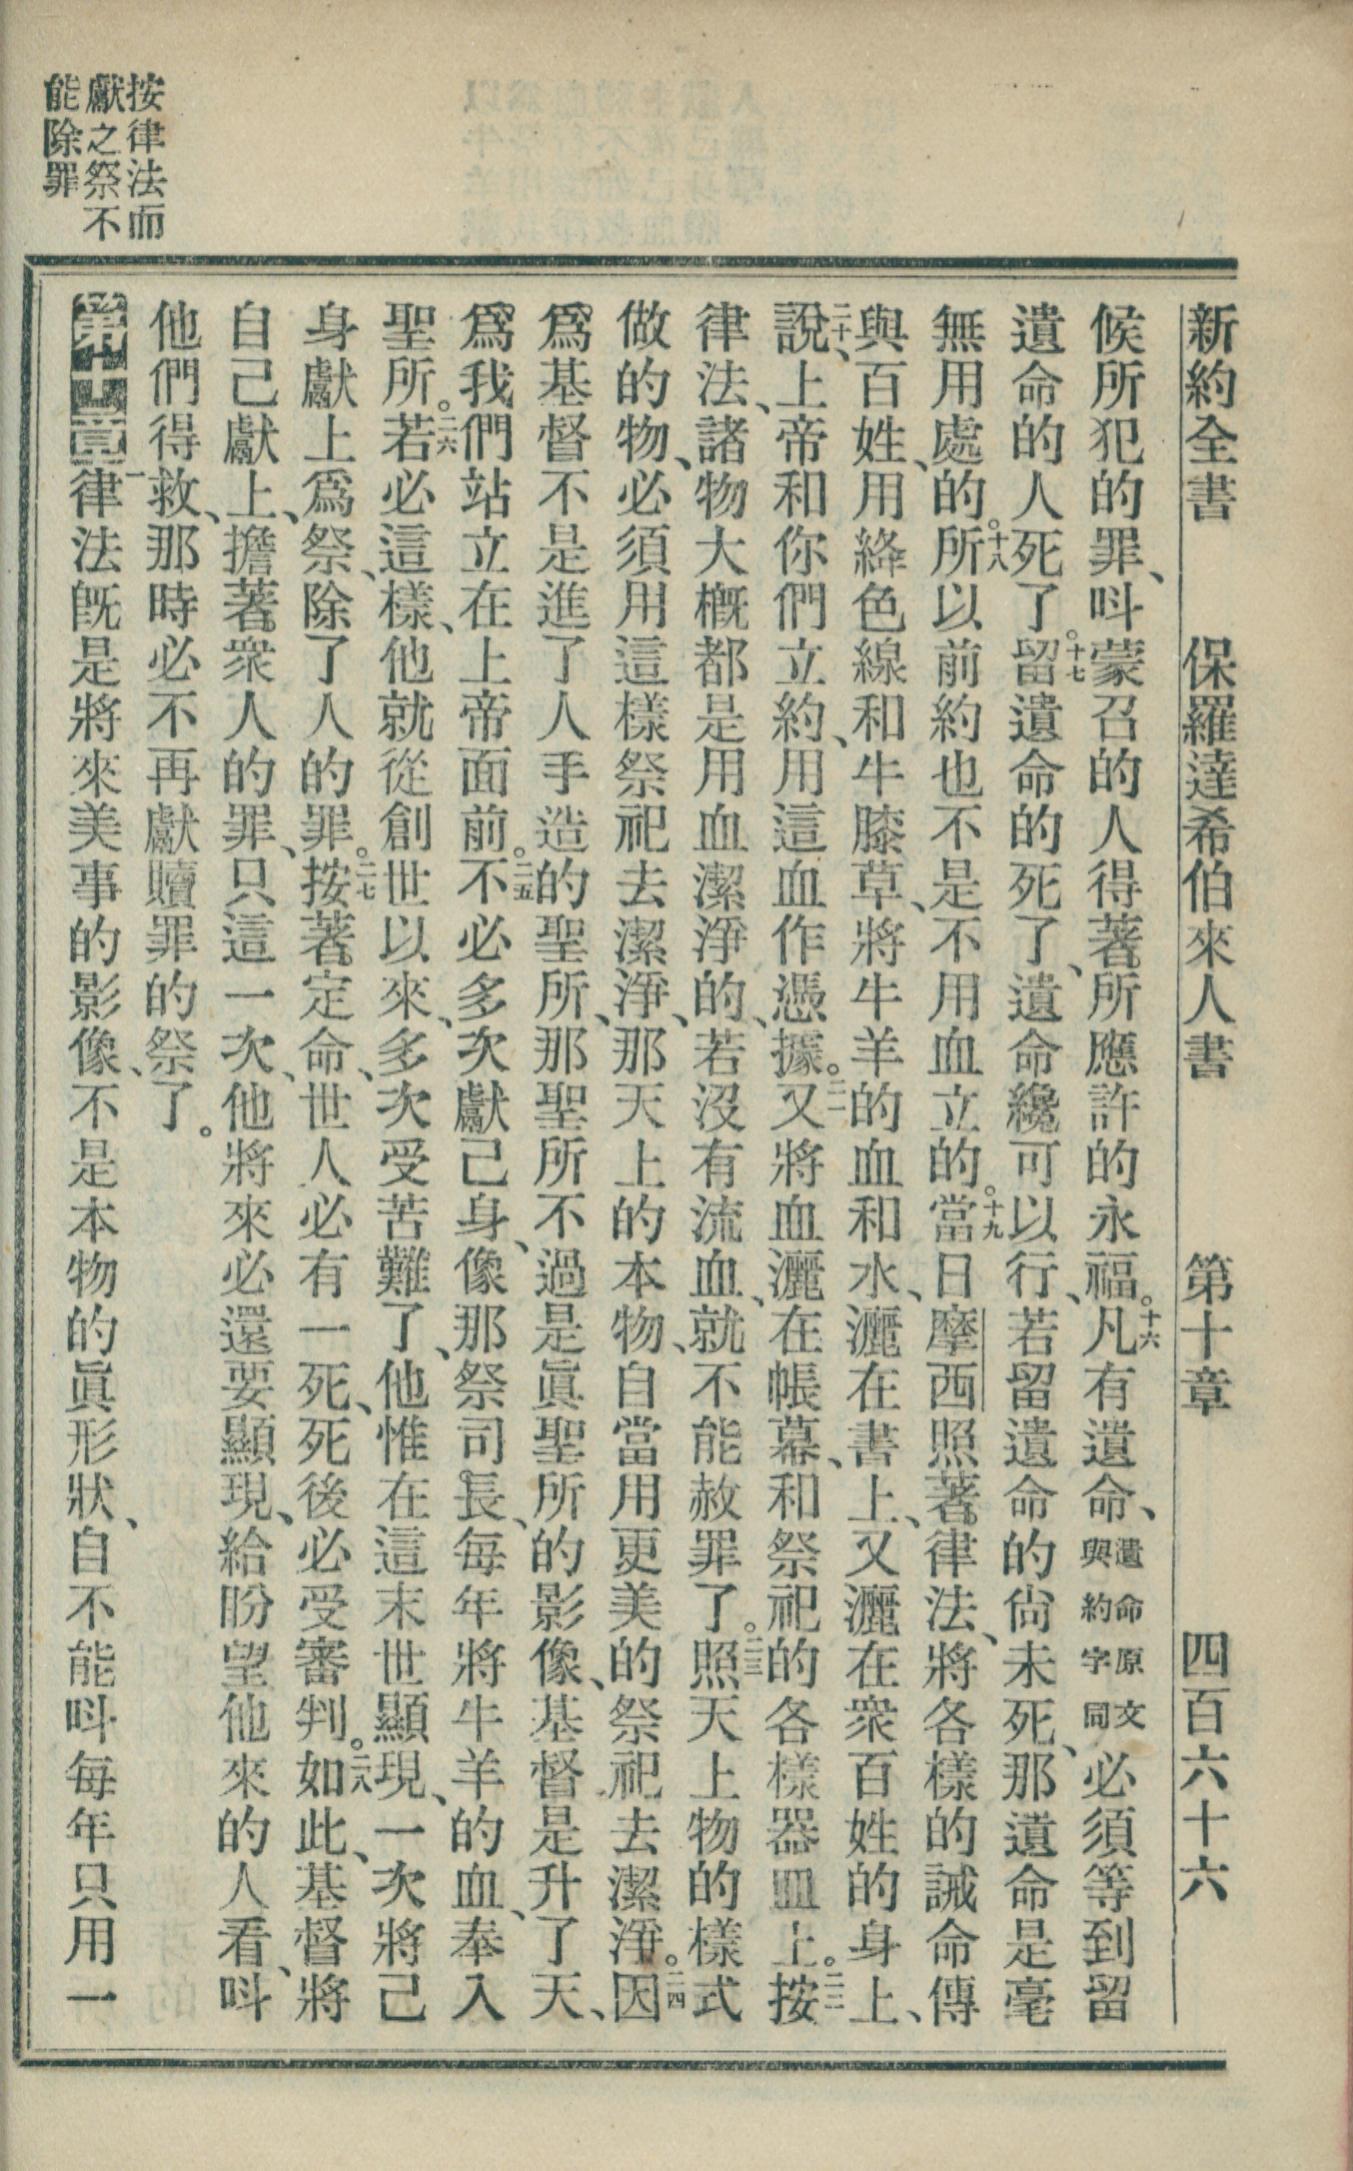 新約全書　保羅達希伯來人書　第十章　四百六十六
候所犯的罪、呌蒙召的人得著所應許的永福。十六凡有遺命、遺命原文與約字同必須等到留
遺命的人死了。十七留遺命的死了、遺命纔可以行、若留遺命的尙未死、那遺命是毫
無用處的。十八所以前約也不是不用血立的。十九當日摩西照著律法、將各樣的誡命傳
與百姓、用絳色線和牛膝草、將牛羊的血和水、灑在書上、又灑在衆百姓的身上、
二十說、上帝和你們立約、用這血作憑據。二一又將血灑在帳幕、和祭祀的各樣器皿上。二二按
律法、諸物大概都是用血潔淨的、若沒有流血、就不能赦罪了。二三照天上物的樣式
做的物、必須用這樣祭祀去潔淨、那天上的本物、自當用更美的祭祀去潔淨。二四因
爲基督不是進了人手造的聖所、那聖所不過是眞聖所的影像、基督是升了天、
爲我們站立在上帝面前。二五不必多次獻己身、像那祭司長、每年將牛羊的血、奉入
聖所。二六若必這樣、他就從創世以來、多次受苦難了、他惟在這末世顯現、一次將己
身獻上爲祭、除了人的罪。二七按著定命、世人必有一死、死後必受審判。二八如此、基督將
自己獻上、擔著衆人的罪、只這一次、他將來必還要顯現、給盼望他來的人看、呌
他們得救、那時必不再獻贖罪的祭了。
第十章一律法旣是將來美事的影像、不是本物的眞形狀、自不能呌每年只用一
按律法而
獻之祭不
能除罪